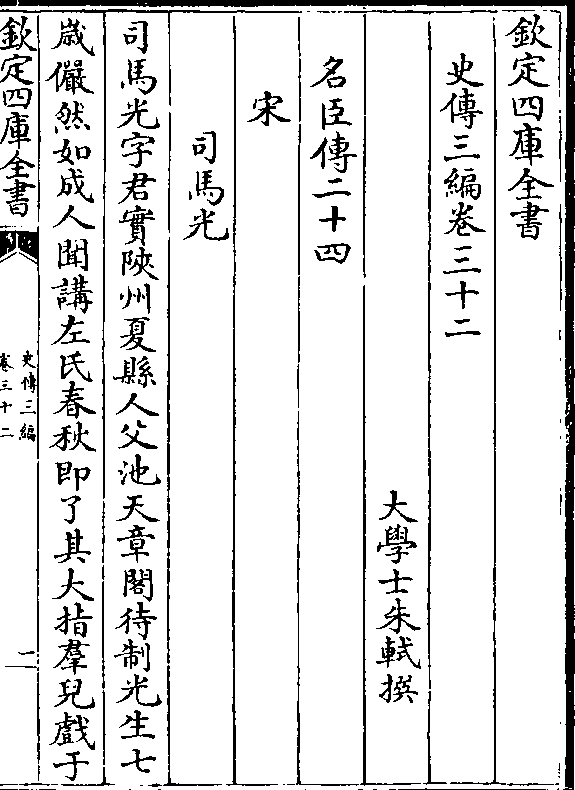 欽定四庫全書
史傳三編卷三十二
大學士朱軾撰
名臣傳二十四
宋
司馬光
司馬光字君實陜州夏縣人父池天章閣待制光生七
歲儼然如成人聞講左氏春秋即了其大指羣兒戲于
欽定四庫全書
史傳三編
卷三十二
二